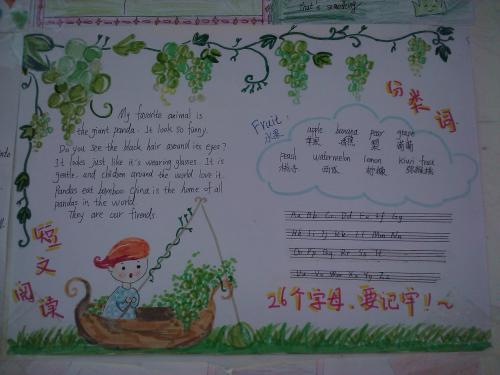 that's something
My favorite animal is
the giant panda. It look so funny.
Do you see the black hair around its eyes?
It looks just like it's wearing glasses. It is
gentle, and children around the world love it.
Pandas eat bamboo china is the home of all
pandas in the world.
They are our friends.
短文
阅读
分类词
Fruit:
水果
apple banana pear grape
苹果 香蕉 梨 葡萄
Peach watermelon lemon kiwi fruit
桃子 西瓜 柠檬 猕猴桃
Aa Bb Cc Dd Ee Ff Gg
Hh Ii Jj Kk Ll Mm Nn
Oo Pp Qq Rr Ss Tt
Uu Vv Ww Xx Yy Zz
26个字母、要记牢!~